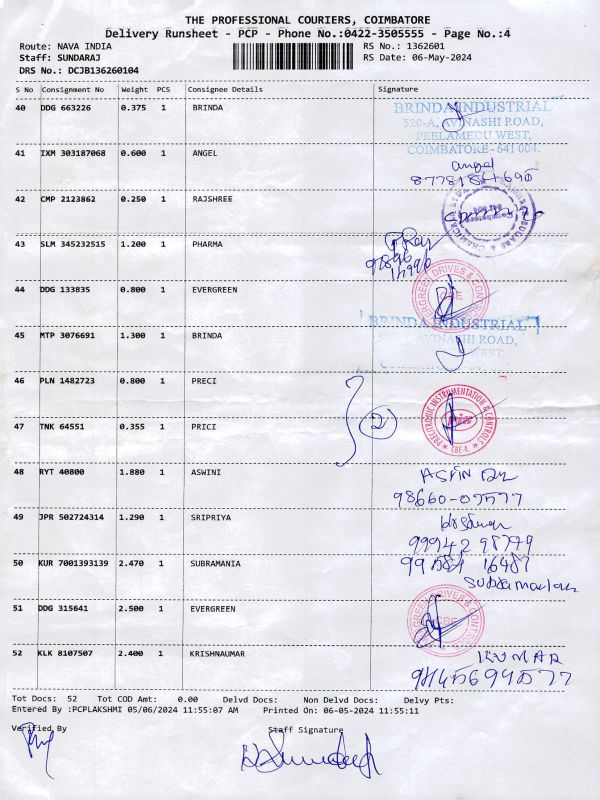 THE PROFESSIONAL COURIERS, COIMBATORE
Delivery Runsheet - PCP - Phone No.:0422-3505555 - Page No.:4
Route: NAVA INDIA RS No.: 1362601
Staff: SUNDARAJ RS Date: 06-May-2024
DRS No.: DCJB136260104
S No Consignment No Weight PCS Consignee Details Signature
40 DDG 663226 0.375 1 BRINDA
BRINDA INDUSTRIAL
520-A, AVINASHI ROAD,
PEELAMEDU WEST,
COIMBATORE - 641 004.
41 IXM 303187068 0.600 1 ANGEL
angel
42 CMP 2123862 0.250 1 RAJSHREE
43 SLM 345232515 1.200 1 PHARMA
44 DDG 133835 0.800 1 EVERGREEN
45 MTP 3076691 1.300 1 BRINDA
BRINDA INDUSTRIAL
46 PLN 1482723 0.800 1 PRECI
2
PRECITRONIC INSTRUMENTATION & CONTROLS
CBE-4.
47 TNK 64551 0.355 1 PRICI
48 RYT 40800 1.880 1 ASWINI
49 JPR 502724314 1.290 1 SRIPRIYA
50 KUR 7001393139 2.470 1 SUBRAMANIA
51 DDG 315641 2.500 1 EVERGREEN
52 KLK 8107507 2.400 1 KRISHNAUMAR
KUMAR
Tot Docs: 52 Tot COD Amt: 0.00 Delvd Docs: Non Delvd Docs: Delvy Pts:
Entered By :PCPLAKSHMI 05/06/2024 11:55:07 AM Printed On: 06-05-2024 11:55:11
Verified By Staff Signature